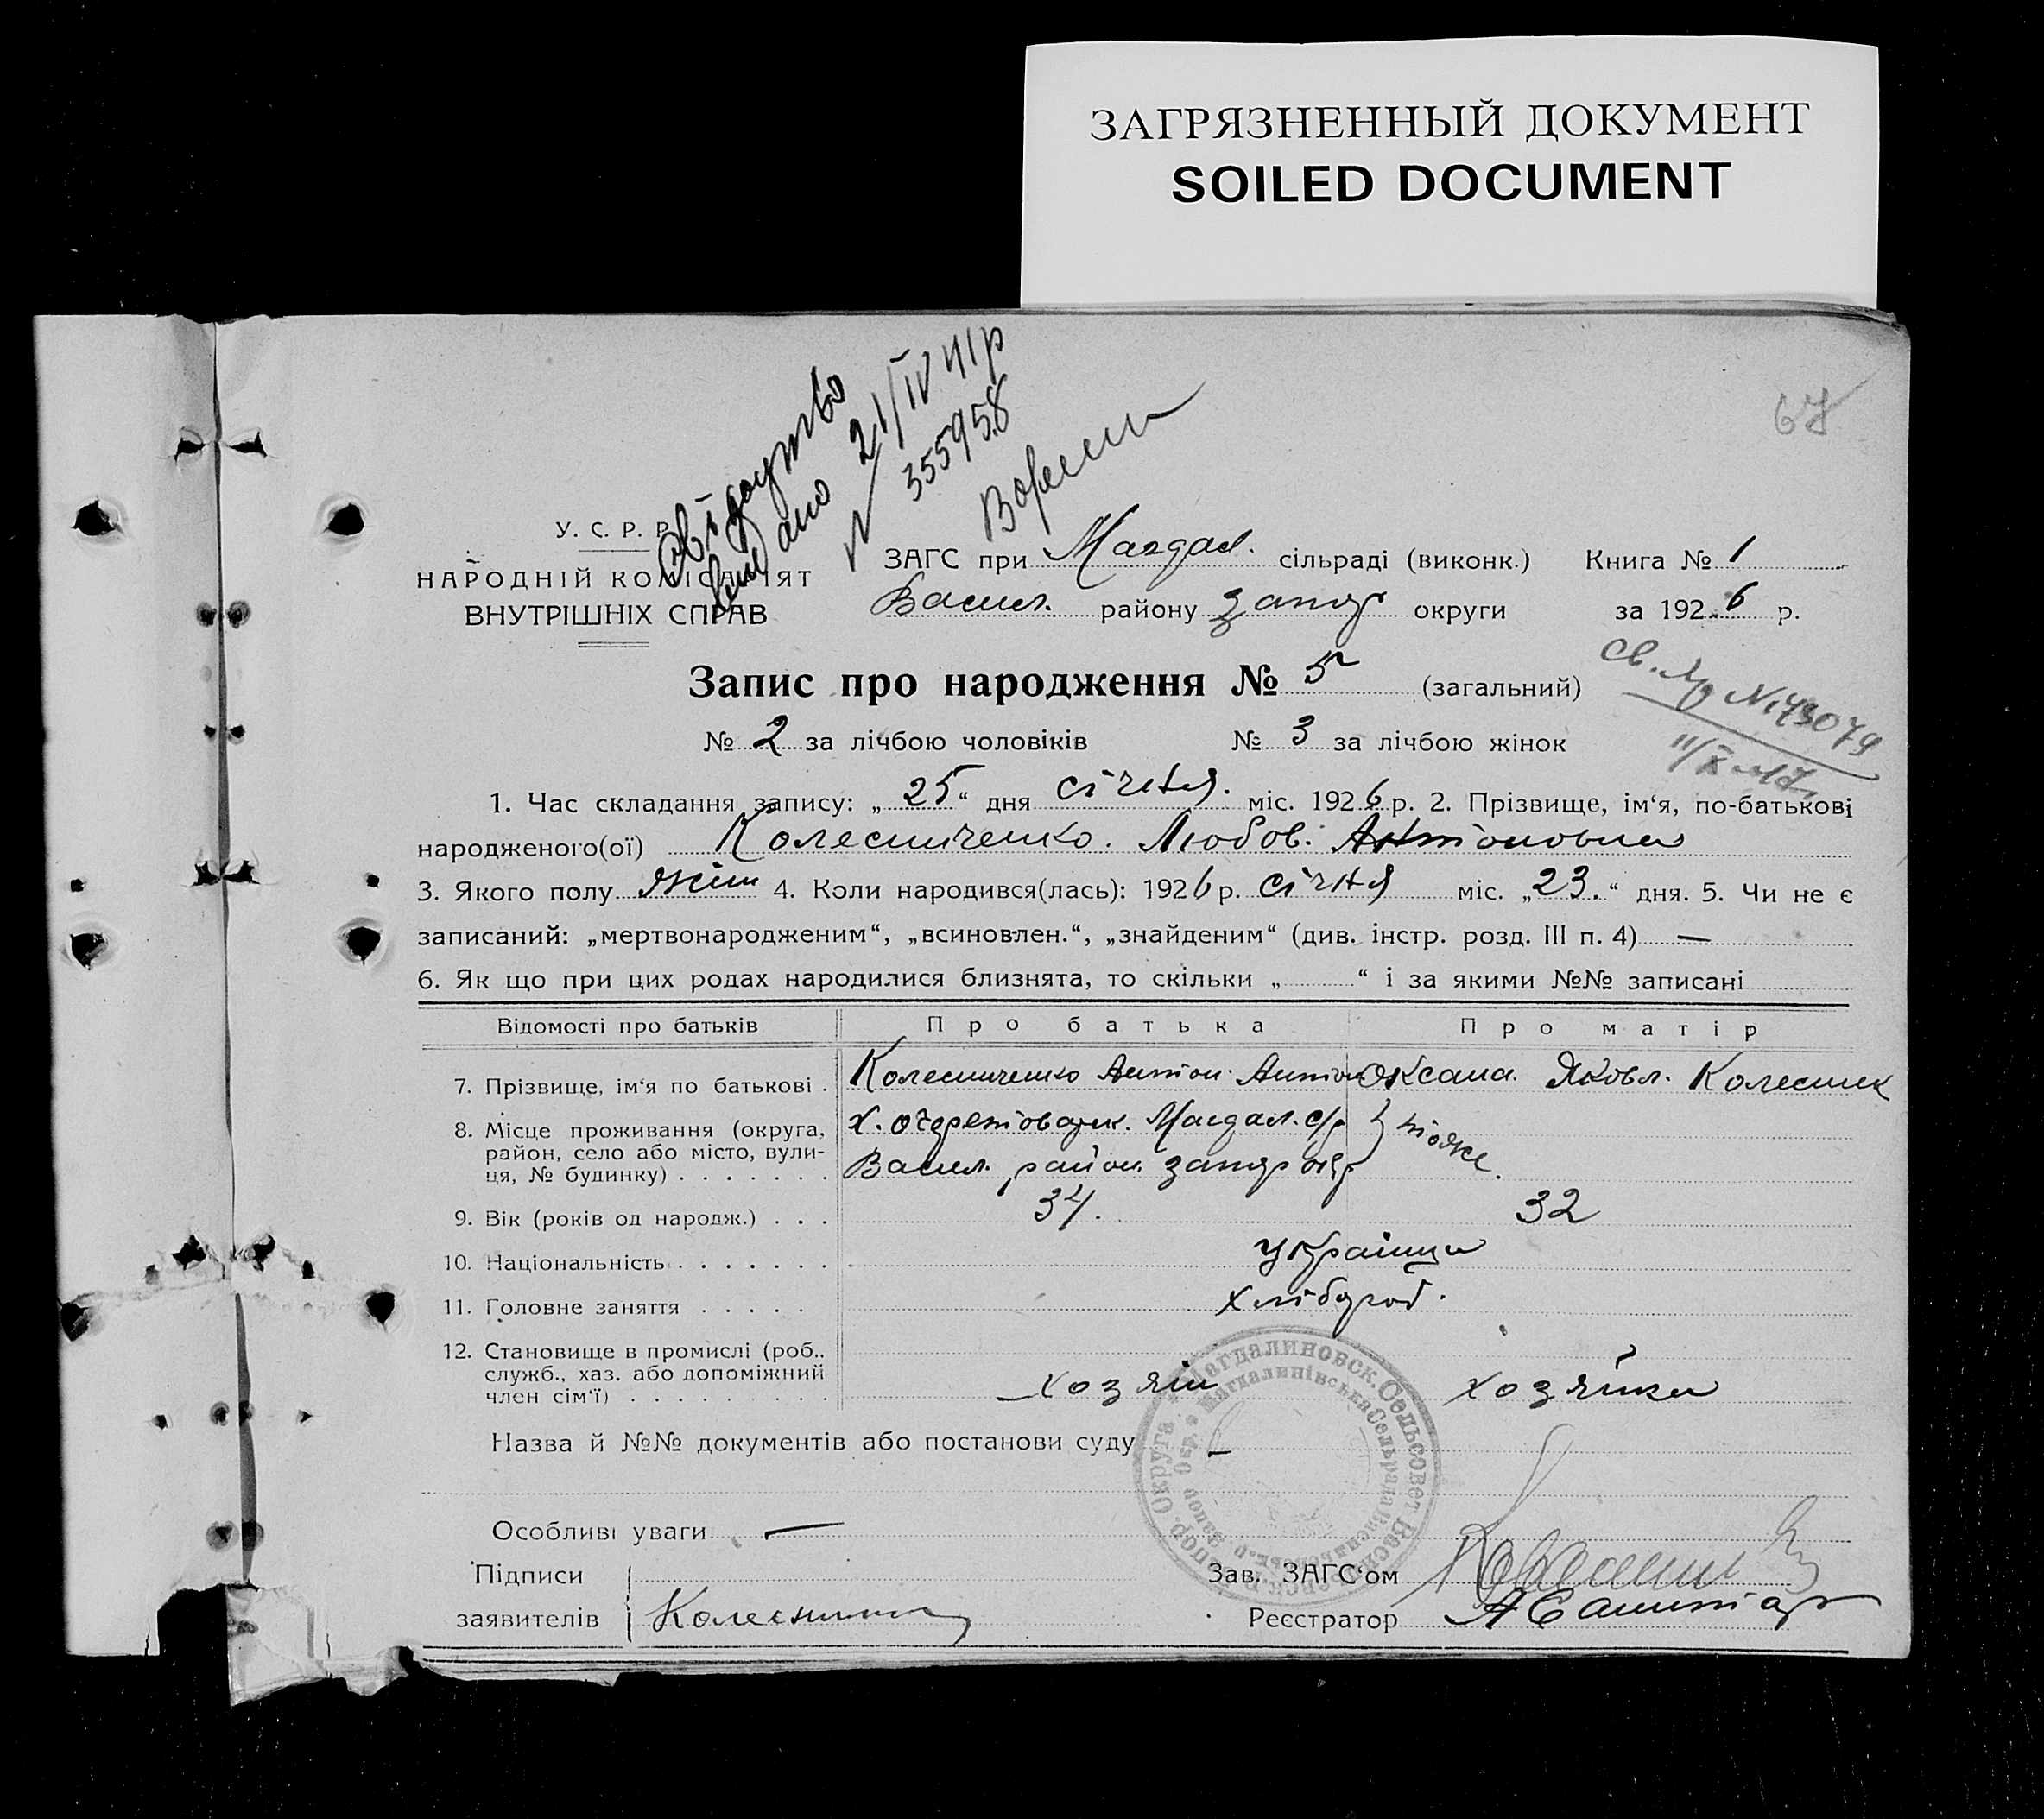 ЗАГРЯЗНЕННЫЙ ДОКУМЕНТ
SOILED DOCUMENT
67
Свідоцтво
видано 21/IV 41р
№ 355958
У. С. Р. Р.
НАРОДНІЙ КОМІСАРІЯТ
ВНУТРІШНІХ СПРАВ
ЗАГС при Магдал. сільраді (виконк.) Книга № 1
Васил. району запор округи за 1926 р.
Запис про народження № 5 (загальний)
св. № 43079
№ 2 за лічбою чоловіків № 3 за лічбою жінок
1. Час складання запису: „25“ дня січня. міс. 1926 р. 2. Прізвище, ім‘я, по-батькові
народженого(ої) Колесниченко. Любов. Антоновна
3. Якого полу жін 4. Коли народився(лась): 1926 р. січня міс. „23.“ дня. 5. Чи не є
записаний: „мертвонародженим“, „всиновлен.“, „знайденим“ (див. інстр. розд. III п. 4) —
6. Як що при цих родах народилися близнята, то скільки „ “ і за якими №№ записані
Відомості про батьків Про батька Про матір
7. Прізвище, ім‘я по батькові . Колесниченко Антон Антон Оксана. Яковл. Колеснич
8. Місце проживання (округа, х. Очеретоват. Магдал. с/р } тоже.
район, село або місто, вули- Васил. район. запор окр
ця, № будинку) . . . . . . .
9. Вік (років од народж.) . . . 34. 32
10. Національність . . . . . . . українци
11. Головне заняття . . . . . хлібороб.
12. Становище в промислі (роб.,
служб., хаз. або допоміжний
член сім‘ї) . . . . . . . . . хозяїн хозяйка
Назва й №№ документів або постанови суду —
Магдалиновск. Сельсовет Васильевск. р. Запор. Округа
Магдалинівська Сельрада Васильевськ. р. Запор. Окр.
Особливі уваги —
Підписи Зав. ЗАГС‘ом
заявителів Колесник Реєстратор